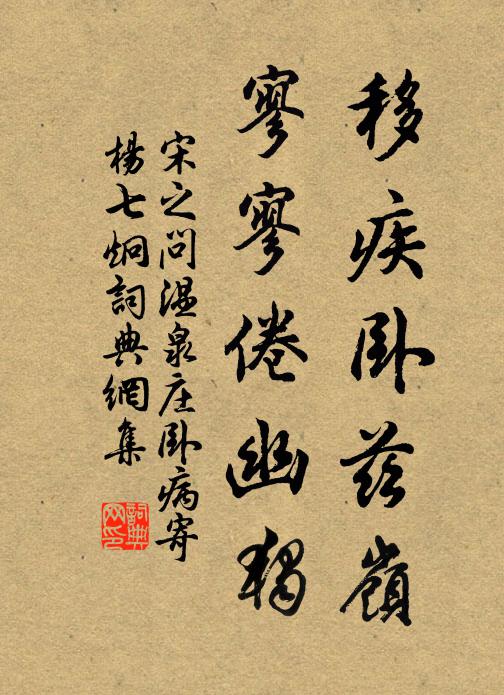 移疾卧兹嶺
寥寥倦幽獨
宋之問溫泉庄卧病寄
楊七炯詞典網集
詞典
网印